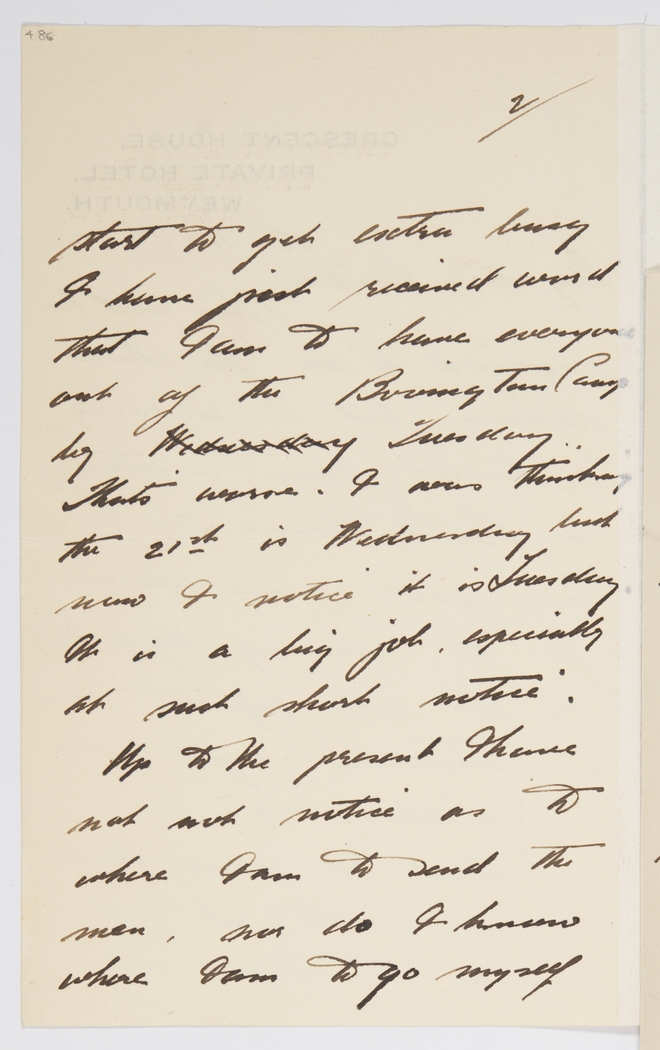 486
2/
CRESCENT HOUSE,
PRIVATE HOTEL,
WEYMOUTH.
start to get extra busy
I have just received word
that I am to have everyone
out of the Bovington Camp
by Wednesday Tuesday.
Thats worse. I was thinking
the 21st is Wednesday but
now I notice it is Tuesday
It is a big job, especially
at such short notice.
Up to the present I have
not notice as to
where I am to send the
men, nor do I know
where I am to go myself